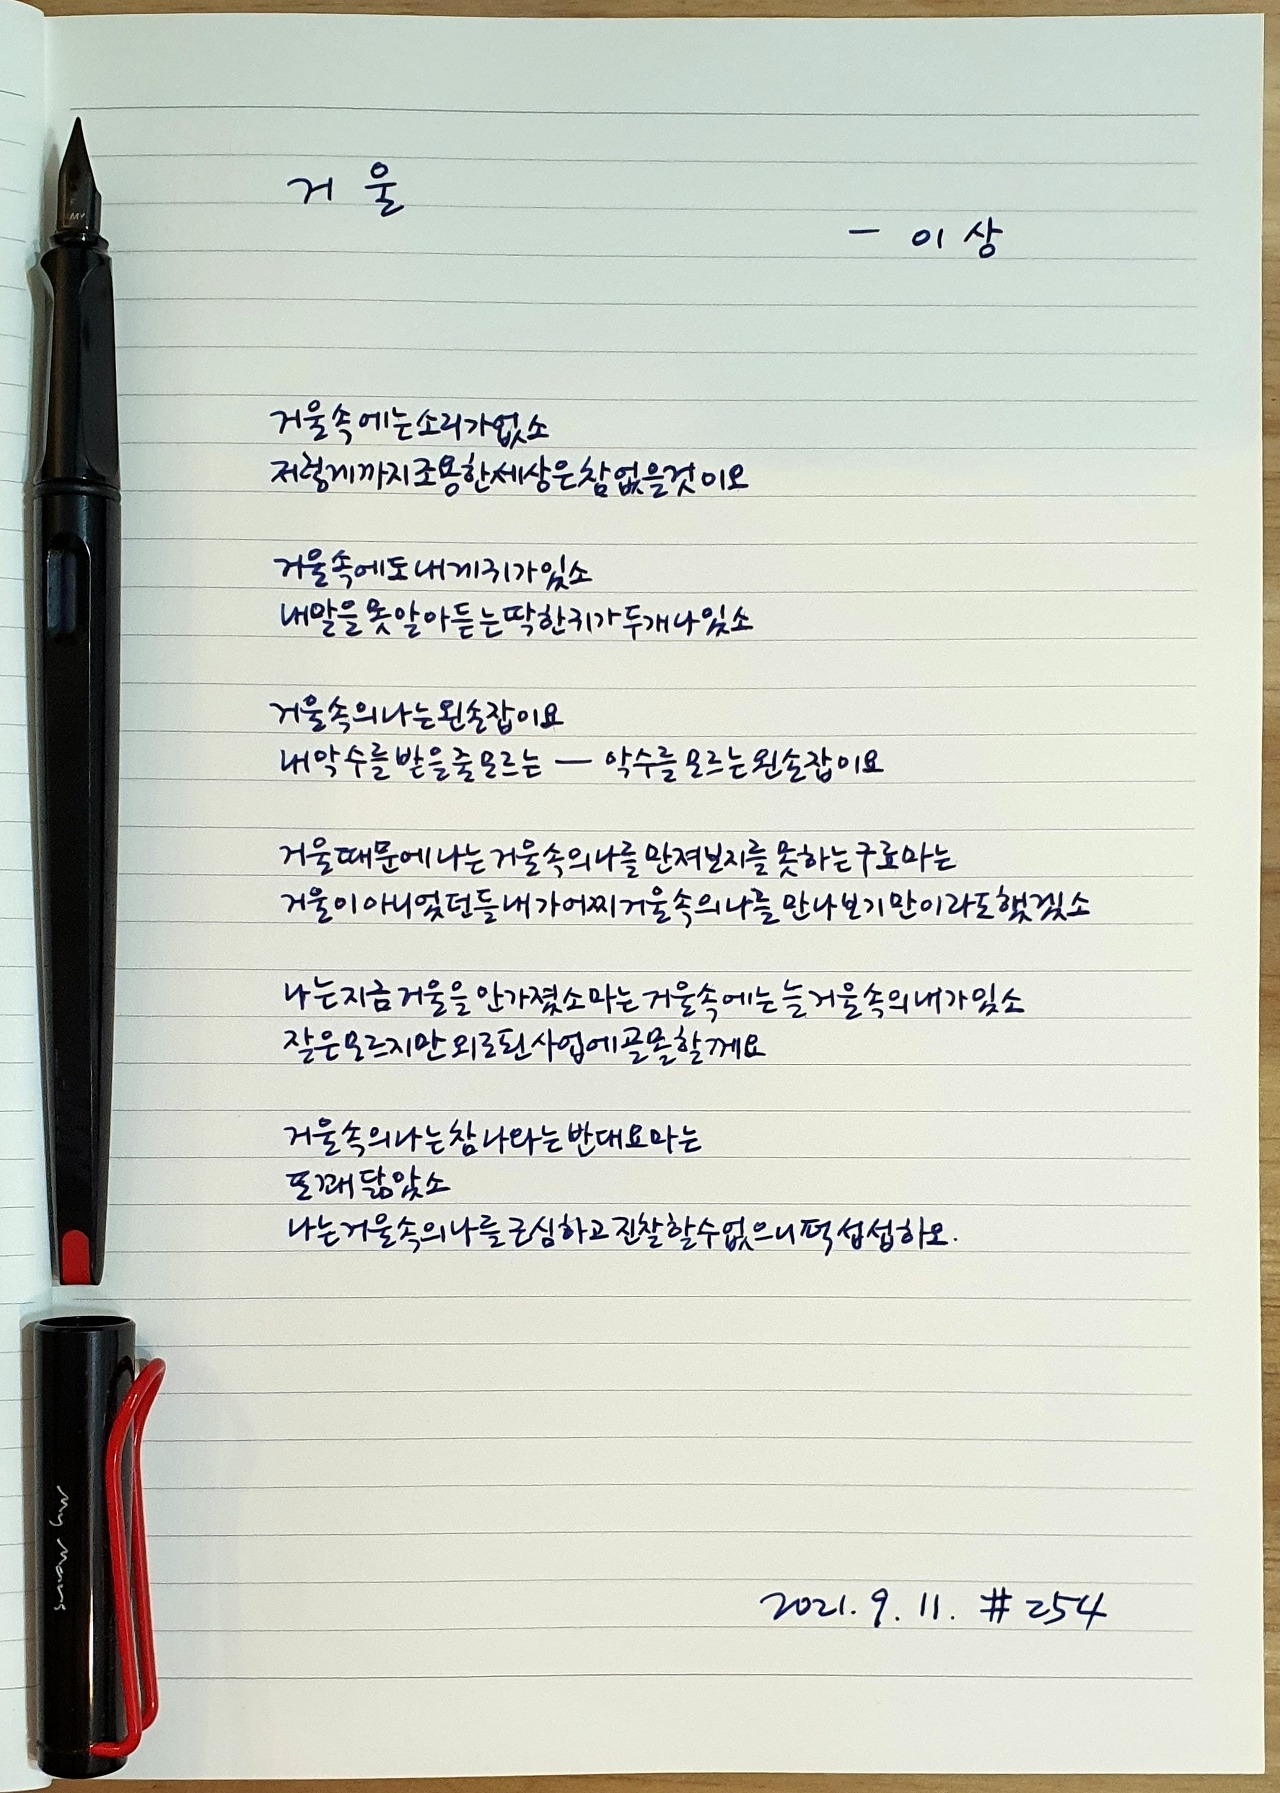 거울
- 이상
거울속에는소리가없소
저렇게까지조용한세상은참없을것이오
거울속에도내게귀가있소
내말을못알아듣는딱한귀가두개나있소
거울속의나는왼손잡이요
내악수를받을줄모르는 — 악수를모르는왼손잡이요
거울때문에나는거울속의나를만져보지를못하는구료마는
거울이아니었던들내가어찌거울속의나를만나보기만이라도했겠소
나는지금거울을안가졌소마는거울속에는늘거울속의내가있소
잘은모르지만외로된사업에골몰할께요
거울속의나는참나와는반대요마는
또꽤닮았소
나는거울속의나를근심하고진찰할수없으니퍽섭섭하오.
2021. 9. 11. # 254